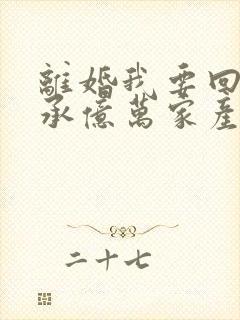 離婚我要回
承億萬家產
二十七